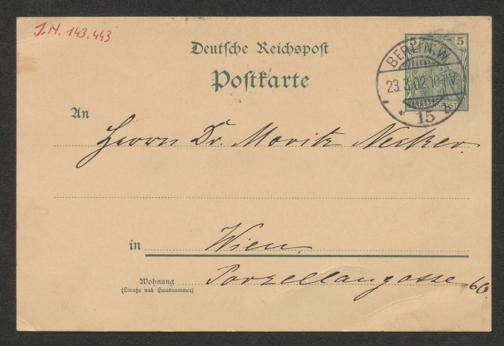 J.N. 143.443
Deutsche Reichspost
5
Postkarte
BERLIN. W
23.3.02.
15
An
Herrn Dr. Moritz Necker.
in Wien.
Wohnung Porzellangasse 60
(Straße und Hausnummer)